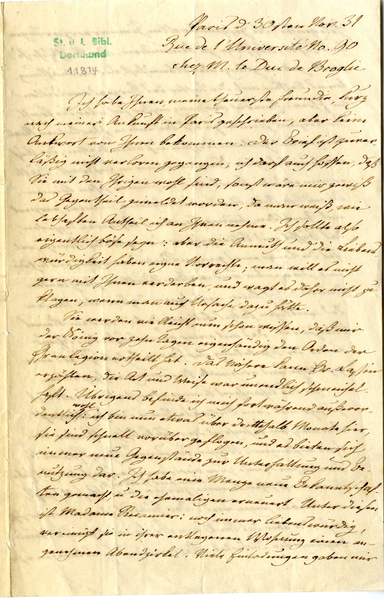 St. u. L. Bibl.
Dortmund
11814
Paris d. 30sten Nov. 31
Rue de l'Université No. 90
chez M. le Duc de Broglie
Ich habe Ihnen meine theuerste Freundin, kurz
nach meiner Ankunft in Paris geschrieben, aber keine
Antwort von Ihnen bekommen. Der Brief ist zuver-
läßig nicht verloren gegangen, ich darf auch hoffen, daß
Sie mit den Ihrigen wohl sind, sonst wäre mir gewiß
das Gegentheil gemeldet worden, da man weiß wie
lebhaften Antheil ich an Ihnen nehme. Ich sollte also
eigentlich böse seyn: aber die Anmuth und die Liebens-
würdigkeit haben eigne Vorrechte; man will es nicht
gern mit Ihnen verderben, und wagt es daher nicht zu
klagen, wenn man auch Ursache dazu hätte.
Sie werden vielleicht nun schon wissen, daß mir
der König vor Tagen eigenhändig den Orden der
Ehrenlegion ertheilt hat. Das Nähere kann Dr.
erzählen, die Art und Weise war unendlich schmeichel-
haft. Übrigens befinde ich mich fortwährend außeror-
dentlich wohl: ich bin nun etwas über drittehalb Monate hier,
sie sind schnell vorübergeflogen, und es bieten sich
immer neue Gegenstände zur Unterhaltung und Be-
nutzung dar. Ich habe eine Menge neue Bekanntschaf-
ten gemacht u die ehemaligen erneuert. Unter diesen
ist Madame Récamier: noch immer liebenswürdig
vereinigt sie in ihrer entlegenen Wohnung einen an-
genehmen Abendzirkel. Viele Einladungen gaben mir